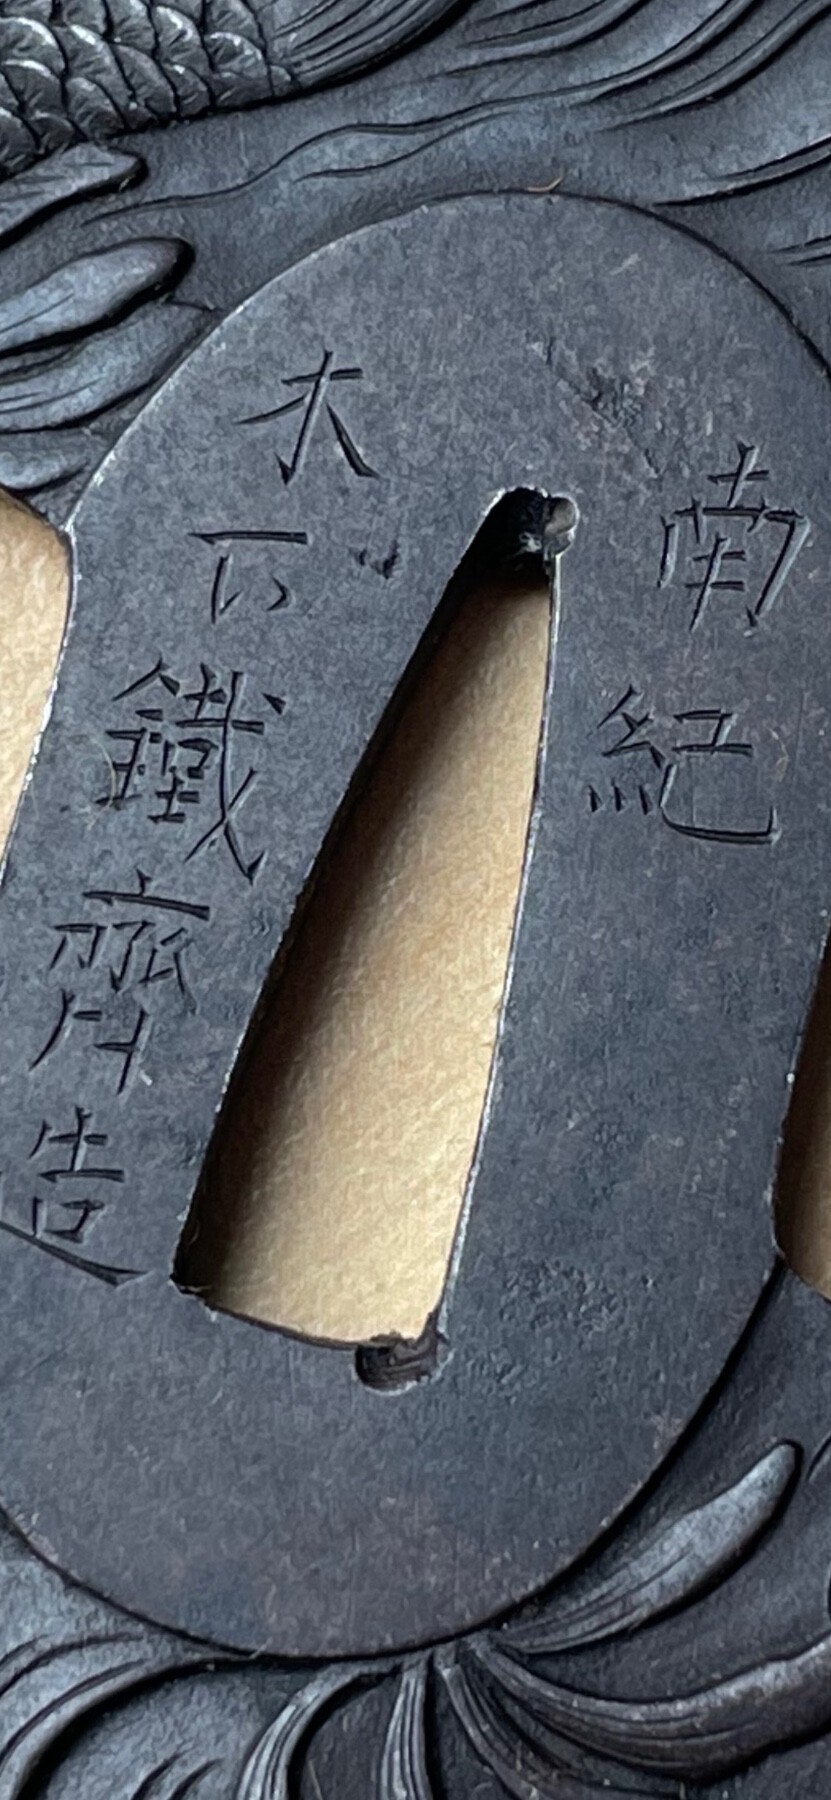 南紀
木下鐵齊造